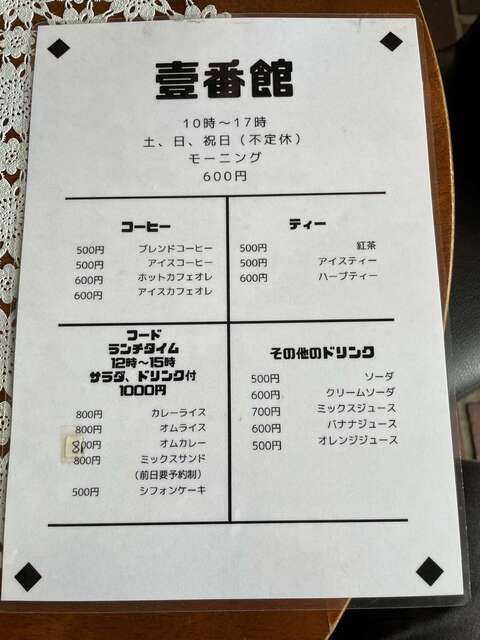 壹番館
10時～17時
土、日、祝日（不定休）
モーニング
600円
コーヒー
500円 ブレンドコーヒー
500円 アイスコーヒー
600円 ホットカフェオレ
600円 アイスカフェオレ
ティー
500円 紅茶
500円 アイスティー
600円 ハーブティー
フード
ランチタイム
12時～15時
サラダ、ドリンク付
1000円
800円 カレーライス
800円 オムライス
800円 オムカレー
800円 ミックスサンド
（前日要予約制）
500円 シフォンケーキ
その他のドリンク
500円 ソーダ
600円 クリームソーダ
700円 ミックスジュース
600円 バナナジュース
500円 オレンジジュース